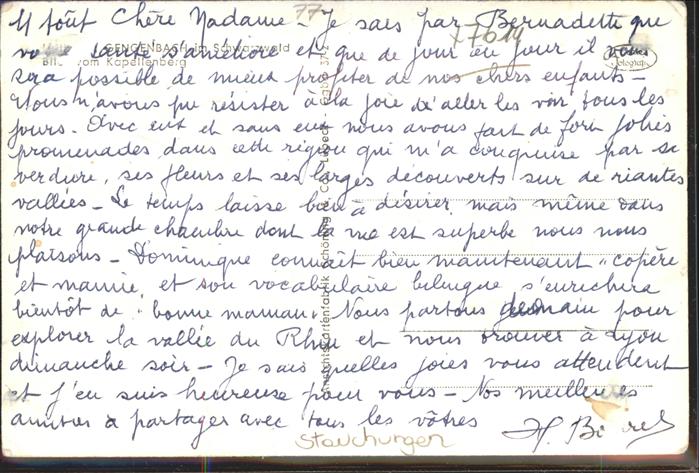 11 Août Chère Madame - Je sais par Bernadette que
77
votre santé s'améliore et que de jour en jour il vous
77614
GENGENBACH im Schwarzwald
Blick vom Kapellenberg
sera possible de mieux profiter de nos chers enfants -
Nous n'avons pu résister à la joie d'aller les voir tous les
jours. Avec eux et sans eux nous avons fait de fort jolies
promenades dans cette région qui m'a conquise par sa
verdure, ses fleurs et ses larges découverts sur de riantes
vallées - Le temps laisse bien à désirer mais même dans
notre grande chambre dont la vue est superbe nous nous
plaisons - Dominique connait bien maintenant "copère
et mamie, et son vocabulaire bilingue s'enrichira
bientôt de "bonne maman". Nous partons demain pour
explorer la vallée du Rhin et nous trouver à Lyon
dimanche soir - Je sais quelles joies vous attendent
et j'en suis heureuse pour vous - Nos meilleures
amitiés à partager avec tous les vôtres
Ansichtskartenfabrik Schöning & Co., Lübeck
Stauchungen